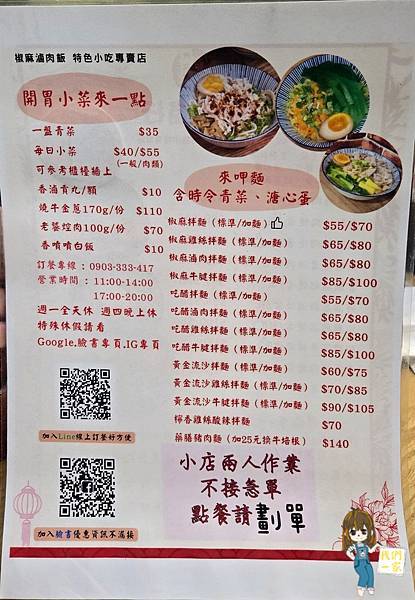 椒麻滷肉飯 特色小吃專賣店
開胃小菜來一點
一盤青菜 $35
每日小菜 $40/$55
(一般/肉類)
可參考櫃檯牆上
香滷貢丸/顆 $10
燒牛金蔥170g/份 $110
老醬焢肉100g/份 $70
香噴噴白飯 $10
訂餐專線 : 0903-333-417
營業時間 : 11:00-14:00
17:00-20:00
週一全天休 週四晚上休
特殊休假請看
Google,臉書專頁,IG專頁
加入Line線上訂餐好方便
加入臉書優惠資訊不漏接
來呷麵
含時令青菜、溏心蛋
椒麻拌麵 (標準/加麵) $55/$70
椒麻雞絲拌麵 (標準/加麵) $65/$80
椒麻滷肉拌麵 (標準/加麵) $65/$80
椒麻牛腱拌麵 (標準/加麵) $85/$100
吃醋拌麵 (標準/加麵) $55/$70
吃醋滷肉拌麵 (標準/加麵) $65/$80
吃醋雞絲拌麵 (標準/加麵) $65/$80
吃醋牛腱拌麵 (標準/加麵) $85/$100
黃金流沙拌麵 (標準/加麵) $60/$75
黃金流沙雞絲拌麵 (標準/加麵) $70/$85
黃金流沙牛腱拌麵 (標準/加麵) $90/$105
檸香雞絲酸辣拌麵 $70
藥膳豬肉麵 (加25元換牛培根) $140
小店兩人作業
不接急單
點餐請劃單
我們一家